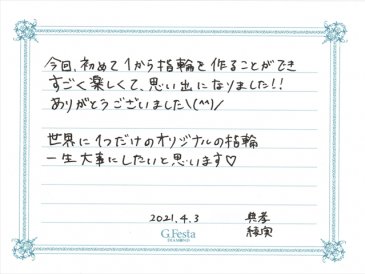 今回、初めて1から指輪を作ることができ
すごく楽しくて、思い出になりました!!
ありがとうございました\(^^)/
世界に1つだけのオリジナルの指輪
一生大事にしたいと思います♡
2021.4.3 典孝
G.Festa 綾実
DIAMOND